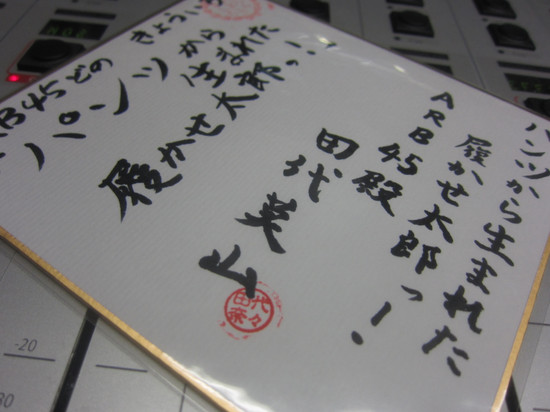 パンツから生まれた
履かせ太郎っ!
ARB45殿
田代
B45どの
きょうい
パンツから生まれた
履かせ太郎っ!!
-20
30